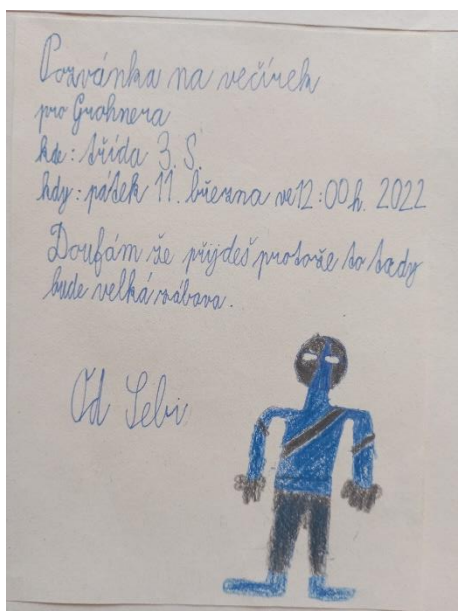 Pozvánka na večírek
pro Grohnera
kde: třída 3. S.
kdy: pátek 11. března ve 12:00 h. 2022
Doufám že přijdeš protože to tady
bude velká zábava.
Od Sebi